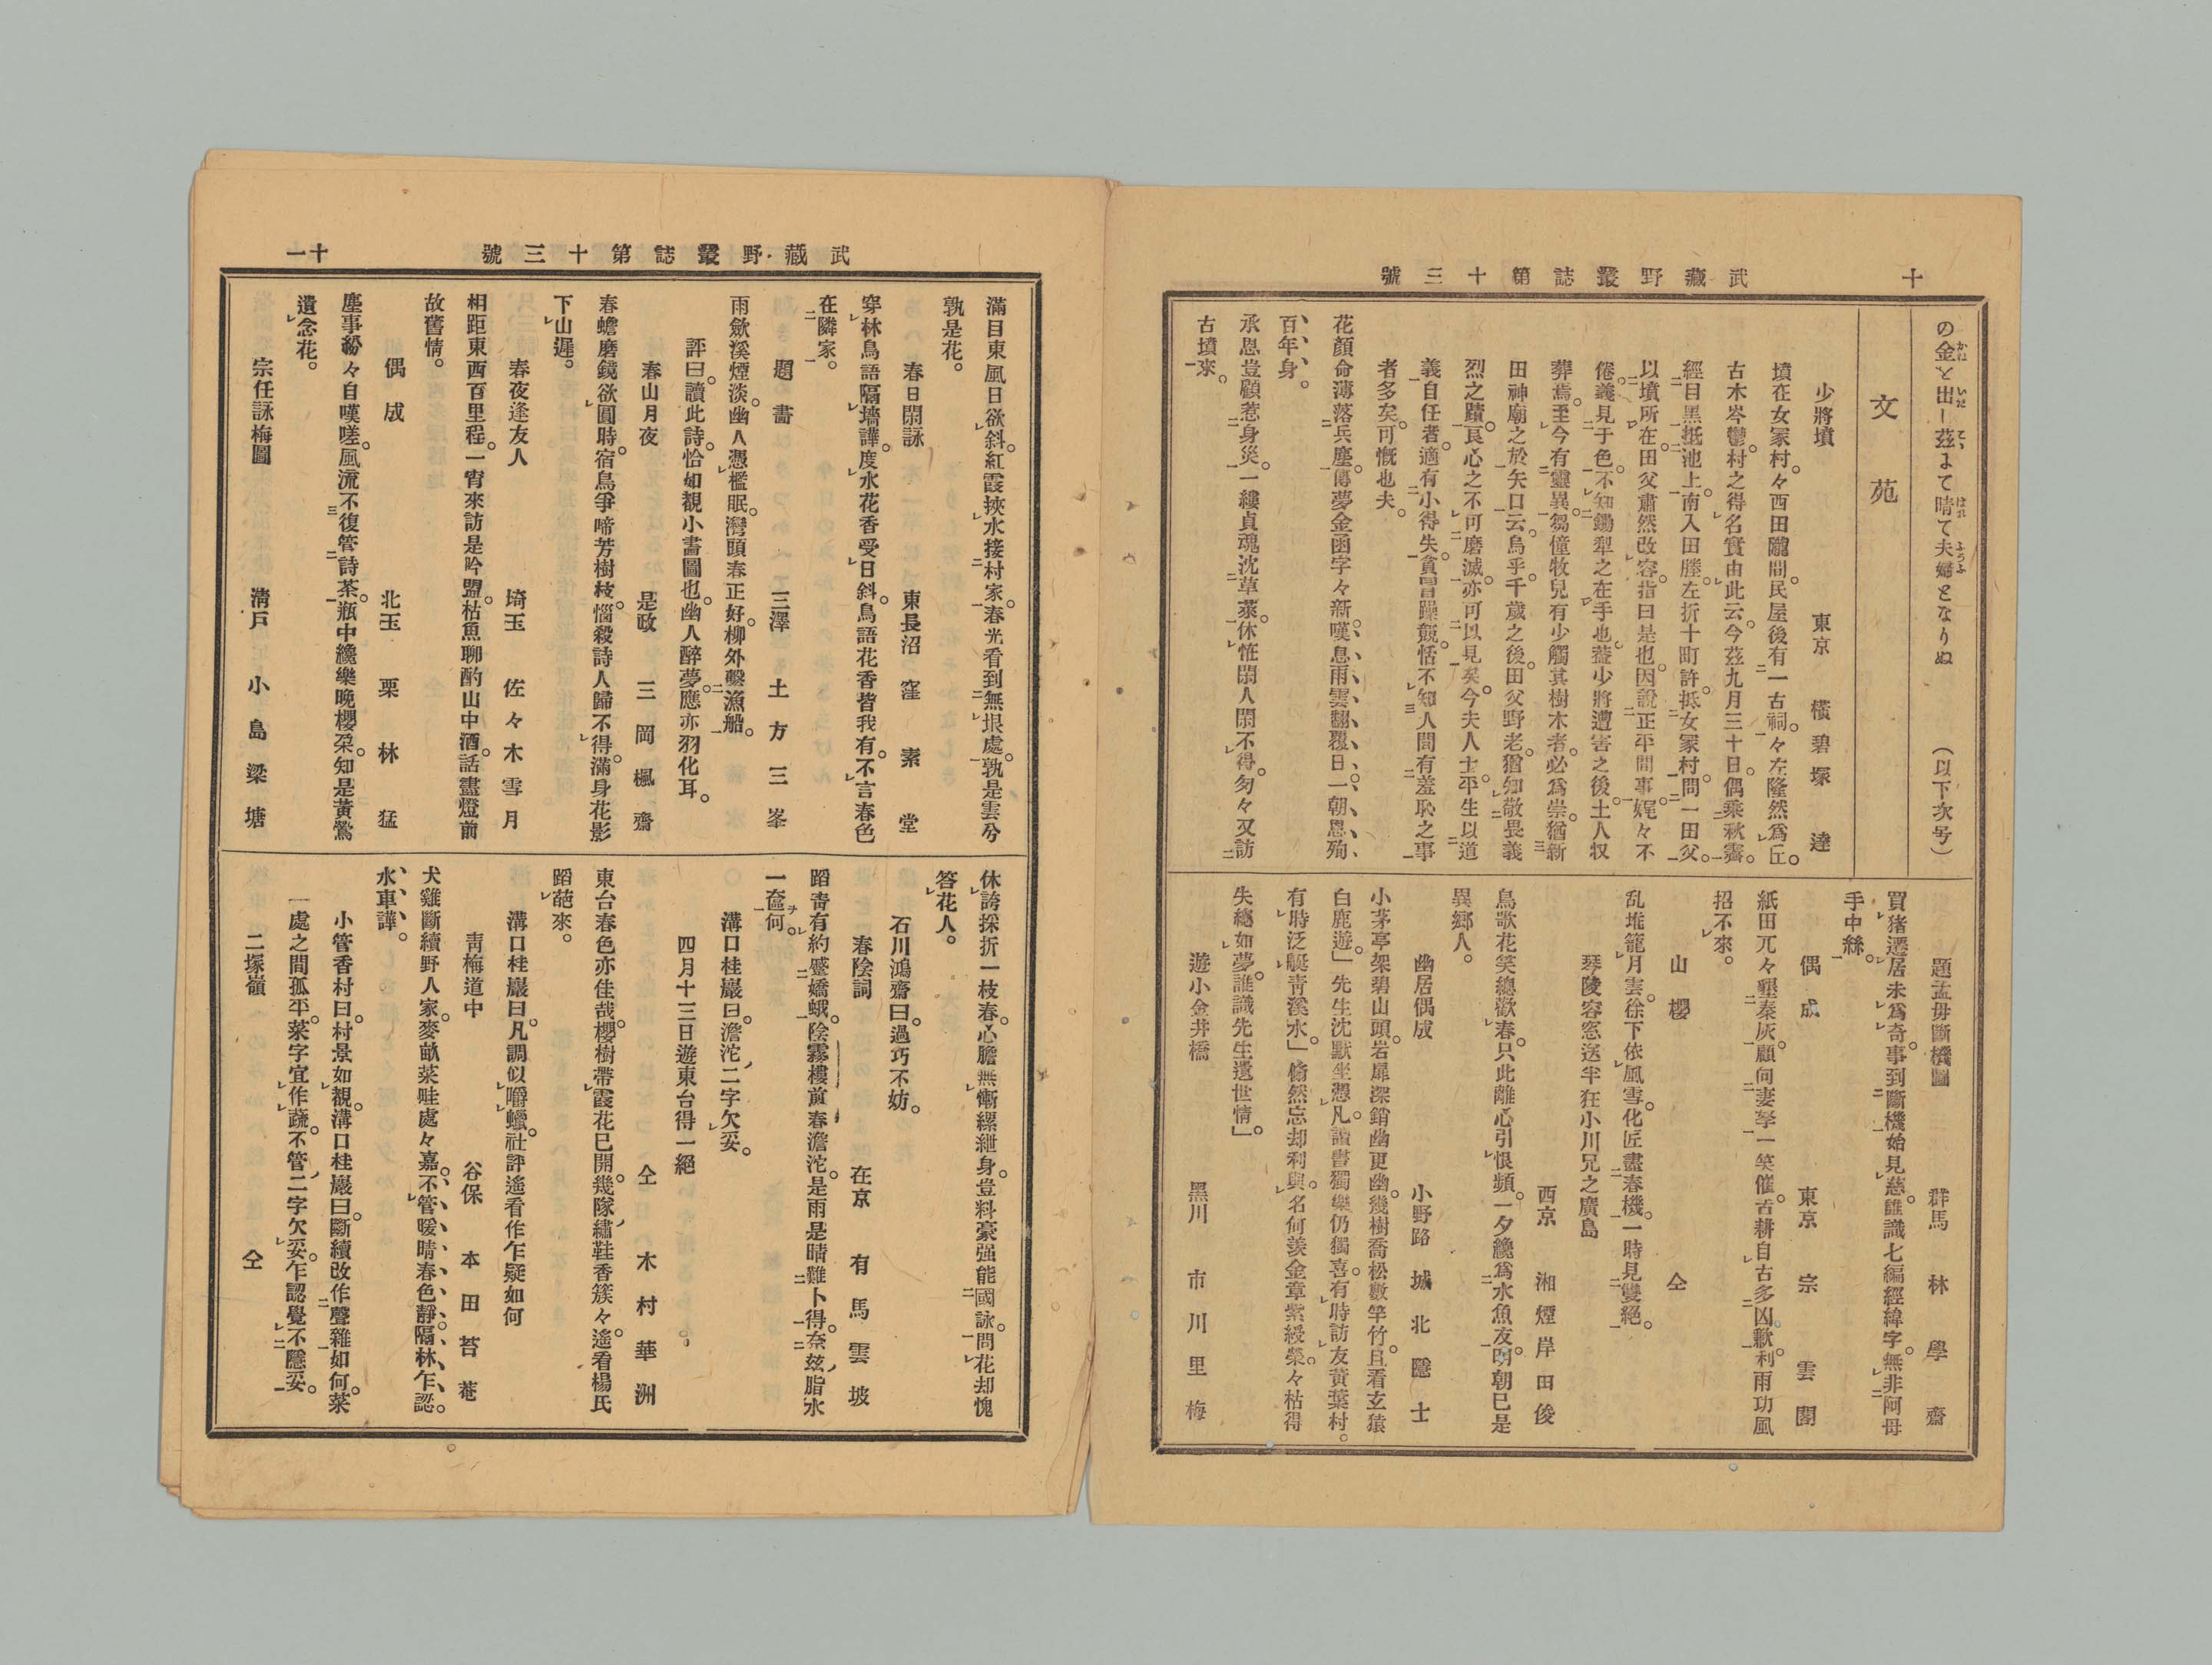 十
武藏野叢誌第十三號
の金を出し茲まて晴て夫婦となりぬ　（以下次号）
文苑
少將墳　東京　橫碧塚達
墳在女冢村。々西田隴間。民屋後有一古祠。々左隆然爲丘。
古木岑鬱。村之得名實由此云。今茲九月三十日。偶乘秋霽。
經目黑抵池上。南入田塍。左折十町許。抵女冢村。問一田父。
以墳所在。田父肅然改容。指曰是也。因說正平間事。娓々不
倦。義見于色。不知鋤犁之在手也。蓋少將遭害之後。土人収
葬焉。至今有靈異。芻僮牧兒有少觸其樹木者。必爲祟。猶新
田神廟之於矢口云。烏乎千歲之後。田父野老。猶知敬畏義
烈之蹟。良心之不可磨滅。亦可以見矣。今夫人士。平生以道
義自任者。適有小得失。貪冒躁競。恬不知人間有羞恥之事
者多矣。可慨也夫。
花顏命薄落兵塵。傳夢金函字々新。嘆息雨雲翻覆日。一朝恩殉
百年身。
承恩豈顧惹身災。一縷貞魂沈草萊。休恠閑人閑不得。匆々又訪
古墳來。
題孟母斷機圖　群馬　林學齋
買猪遷居未爲奇。事到斷機始見慈。誰識七編經緯字。無非阿母
手中絲。
偶成　東京　宗雲閣
紙田兀々墾秦灰。顧向妻孥一笑催。舌耕自古多凶歉。利雨功風
招不來。
山櫻　仝
乱堆籠月雲。徐下依風雪。化匠盡春機。一時見雙絕。
琴陵容窓送半狂小川兄之廣島
西京　湘煙岸田俊
鳥歌花笑總歡春。只此離心引恨頻。一夕纔爲水魚友。明朝已是
異鄕人。
幽居偶成　小野路　城北隱士
小茅亭架碧山頭。岩扉深鎖幽更幽。幾樹喬松數竿竹。且看玄猿
白鹿遊。」先生沈默坐憑几。讀書獨樂仍獨喜。有時訪友黃葉村。
有時泛艇靑溪水。」脩然忘却利與名。何羨金章紫綬榮。々枯得
失總如夢。誰識先生遺世情。」
遊小金井橋　黑川　市川里梅
武藏野叢誌第十三號
十一
滿目東風日欲斜。紅霞挾水接村家。春光看到無垠處。孰是雲兮
孰是花。
春日閑詠　東長沼　窪素堂
穿林鳥語隔墻譁。度水花香受日斜。鳥語花香皆我有。不言春色
在隣家。
題畵　三澤　土方三峯
雨歛溪煙淡。幽人憑檻眠。灣頭春正好。柳外繫漁船。
評曰。讀此詩。恰如觀小畵圖也。幽人醉夢。應亦羽化耳。
春山月夜　是政　三岡楓齋
春蟾磨鏡欲圓時。宿鳥爭啼芳樹枝。惱殺詩人歸不得。滿身花影
下山遲。
春夜逢友人　埼玉　佐々木雪月
相距東西百里程。一宵來訪是吟盟。枯魚聊酌山中酒。話盡燈前
故舊情。
偶成　北玉　栗林猛
塵事紛々自嘆嗟。風流不復管詩茶。瓶中纔樂晩櫻朶。知是黃鶯
遺念花。
宗任詠梅圖　淸戶　小島梁塘
休誇採折一枝春。心膽無慚縲紲身。豈料豪强能國詠。問花却愧
答花人。
石川鴻齋曰。過巧不妨。
春陰詞　在京　有馬雲坡
蹈靑有約蹙嬌蛾。陰霧樓前春澹沱。是雨是晴難卜得。奈玆脂水
一奩何。
溝口桂巖曰。澹沱、二字欠妥。
四月十三日遊東台得一絕
仝　木村華洲
東台春色亦佳哉。櫻樹帶霞花已開。幾隊繡鞋香簇々。遙看楊氏
蹈葩來。
溝口桂巖曰。凡調似嚼蠟。社評遙看作乍疑如何
靑梅道中　谷保　本田苔菴
犬雞斷續野人家。麥畝菜畦處々嘉。不管暖晴春色靜。隔林乍認。
水車譁。
小管香村曰。村景如觀。溝口桂巖曰。斷續改作聲雜如何。菜
一處之間孤平。菜字宜作蔬。不管、二字欠妥。乍認覺不隱妥。
二塚嶺　仝